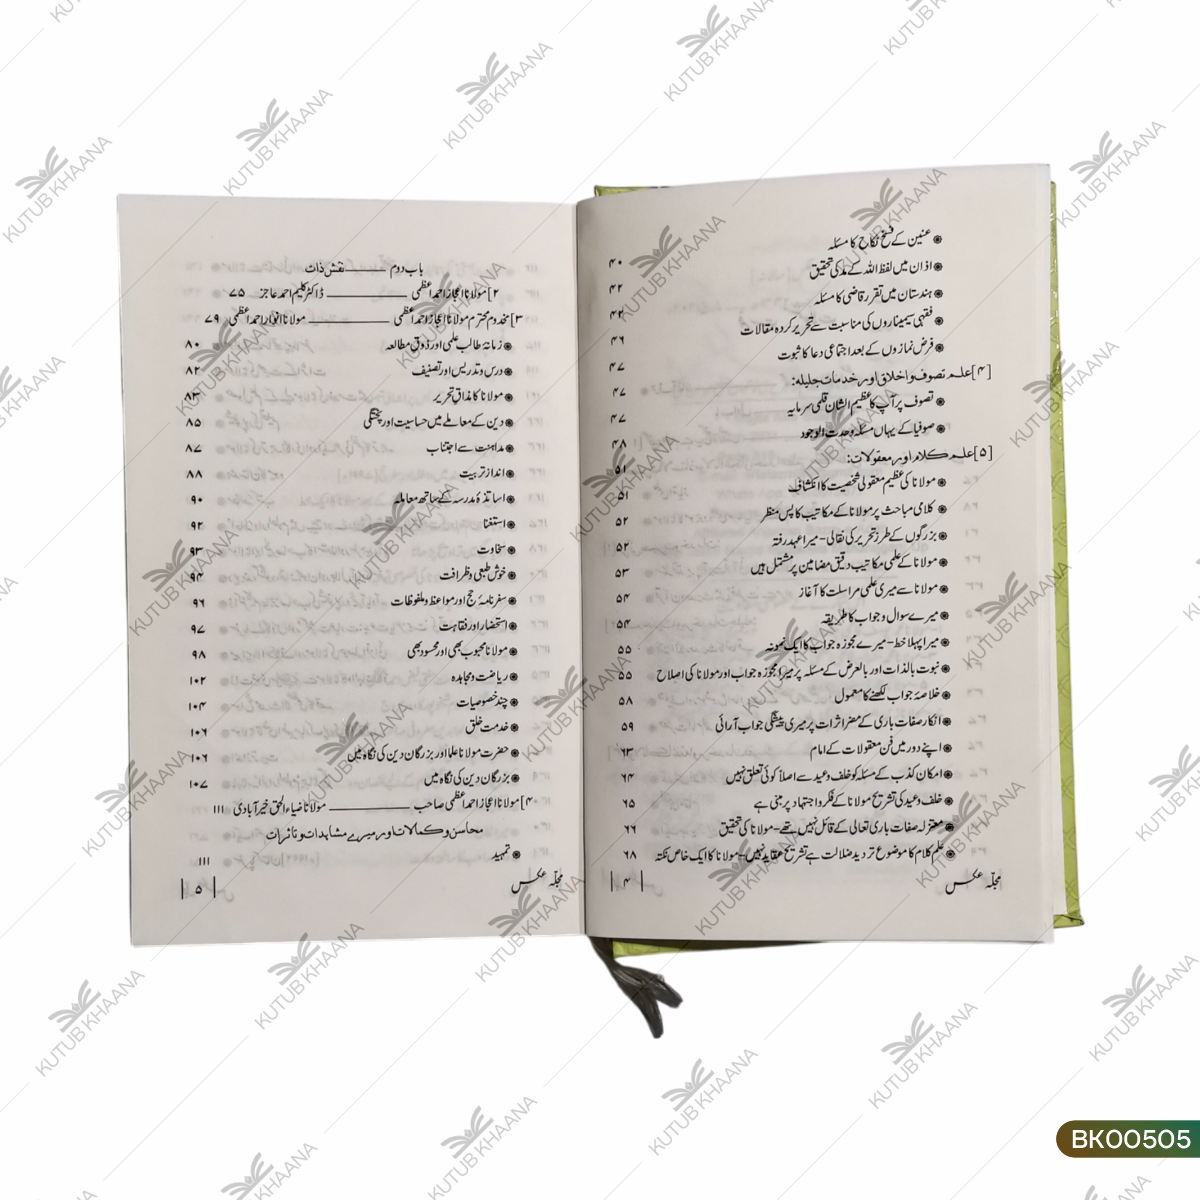 عنین کے فسخ نکاح کا مسئلہ ۴۰
اذان میں لفظ اللہ کے مد کی تحقیق ۴۲
ہندستان میں تقرر قاضی کا مسئلہ ۴۴
فقہی سیمیناروں کی مناسبت سے تحریر کردہ مقالات ۴۶
فرض نمازوں کے بعد اجتماعی دعا کا ثبوت ۴۷
[۴] علم تصوف و اخلاق اور خدمات جلیلہ: ۴۷
تصوف پر آپ کا عظیم الشان قلمی سرمایہ ۴۷
صوفیا کے یہاں مسئلہ وحدت الوجود ۴۸
[۵] علم کلام اور معقولات: ۵۱
مولانا کی عظیم معقولی شخصیت کا انکشاف ۵۱
کلامی مباحث پر مولانا کے مکاتیب کا پس منظر ۵۲
بزرگوں کے طرز تحریر کی نقالی - میرا عہد رفتہ ۵۲
مولانا کے علمی مکاتیب دقیق مضامین پر مشتمل ہیں ۵۳
مولانا سے میری علمی مراسلت کا آغاز ۵۴
میرے سوال و جواب کا طریقہ ۵۴
میرا پہلا خط - میرے مجوزہ جواب کا ایک نمونہ ۵۵
نبوت بالذات اور بالعرض کے مسئلہ پر میرا مجوزہ جواب اور مولانا کی اصلاح ۵۵
خلاصۂ جواب لکھنے کا معمول ۵۸
انکار صفات باری کے مضر اثرات پر میری پیشگی جواب آرائی ۵۹
اپنے دور میں فن معقولات کے امام ۶۳
امکان کذب کے مسئلہ کو خلف وعید سے اصلاً کوئی تعلق نہیں ۶۴
خلف وعید کی تشریح مولانا کے فکر و اجتہاد پر مبنی ہے ۶۵
معتزلہ صفات باری تعالی کے قائل نہیں تھے - مولانا کی تحقیق ۶۶
علم کلام کا موضوع تردید ضلالت ہے تشریح عقاید نہیں - مولانا کا ایک خاص نکتہ ۶۸
مجلہ عکس | ۴ |
باب دوم ـــــــ نقش ذات
۲] مولانا اعجاز احمد اعظمی ـــــــ ڈاکٹر کلیم احمد عاجز ۷۵
۳] مخدوم محترم مولانا اعجاز احمد اعظمی ـــــــ مولانا انوار احمد اعظمی ۷۹
زمانۂ طالب علمی اور ذوق مطالعہ ۸۰
درس و تدریس اور تصنیف ۸۲
مولانا کا مذاق تحریر ۸۳
دین کے معاملے میں حساسیت اور پختگی ۸۵
مداہنت سے اجتناب ۸۷
انداز تربیت ۸۸
اساتذۂ مدرسہ کے ساتھ معاملہ ۹۰
استغنا ۹۲
سخاوت ۹۳
خوش طبعی و ظرافت ۹۴
سفر نامۂ حج اور مواعظ و ملفوظات ۹۶
استحضار اور فقاہت ۹۷
مولانا محبوب بھی اور محسود بھی ۹۸
ریاضت و مجاہدہ ۱۰۲
چند خصوصیات ۱۰۴
خدمت خلق ۱۰۶
حضرت مولانا علما اور بزرگان دین کی نگاہ میں ۱۰۶
بزرگان دین کی نگاہ میں ۱۰۷
۴] مولانا اعجاز احمد اعظمی صاحب ـــــــ مولانا ضیاء الحق خیر آبادی ۱۱۱
محاسن و کمالات اور میرے مشاہدات و تاثرات
تمہید ۱۱۱
مجلہ عکس | ۵ |
BK00505
KUTUB KHAANA